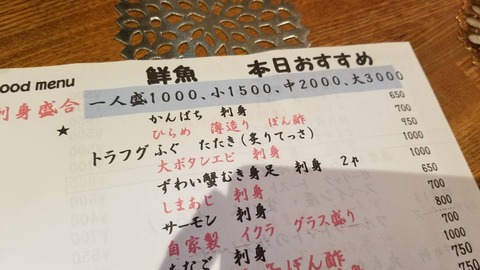 ood menu
鮮魚 本日おすすめ
刺身盛合
一人盛1000、小1500、中2000、大3000
★
かんぱち 刺身 650
ひらめ 薄造り ぽん酢 700
トラフグ ふぐ たたき(炙りてっさ) 950
大ボタンエビ 刺身 1000
ずわい蟹むき身足 刺身 2ヶ 1000
しまあじ 刺身 650
サーモン 刺身 700
自家製 イクラ グラス盛り 800
あなご 刺身 700
ぽん酢 1000
750
750